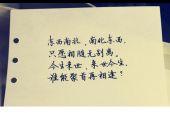 东西南北，南北东西，
只愿相随无别离。
今生来世，来世今生，
谁能聚首再相逢？